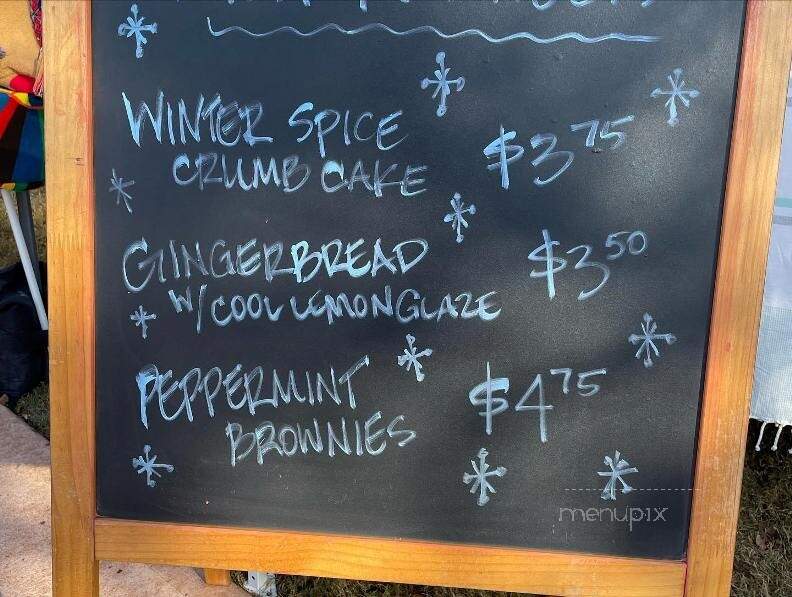 WINTER SPICE
CRUMB CAKE $3.75
GINGERBREAD
W/ COOL LEMON GLAZE $3.50
PEPPERMINT
BROWNIES $4.75
menupix